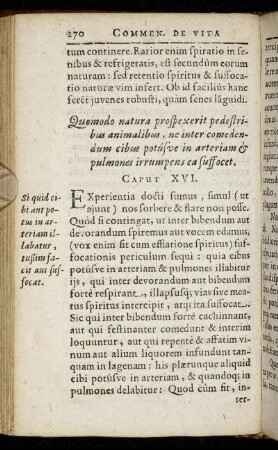 270 COMMEN. DE VITA
tum continere. Rarior enim spiratio in se-
nibus & refrigeratis, est secundùm eorum
naturam: sed retentio spiritus & suffoca-
tio naturæ vim infert. Ob id faciliùs hanc
ferẽt juvenes robusti, quàm senes lãguidi.
Quomodo natura prospexerit pedestri-
bus animalibus, ne inter comeden-
dum cibus potúsve in arteriam &
pulmones irrumpens ea suffocet.
CAPUT XVI.
Si quid ci-
bi aut po-
tus in ar-
teriam il-
labatur,
tussim fa-
cit aut suf-
focat.
EXperientia docti sumus, simul (ut
ajunt) nos sorbere & flare non posse.
Quòd si contingat, ut inter bibendum aut
devorandum spiremus aut vocem edamus,
(vox enim sit cum efflatione spiritus) suf-
focationis periculum sequi: quia cibus
potúsve in arteriam & pulmones illabitur
ijs, qui inter devorandum aut bibendum
fortè respirant, illapsusq; vias sive mea-
tus spiritus intercipit, atq; ita suffocat.
Sic qui inter bibendum fortè cachinnant,
aut qui festinanter comedunt & interim
loquuntur, aut qui repentè & affatim vi-
num aut alium liquorem infundunt tan-
quam in lagenam: his plærunque aliquid
cibi potúsve in arteriam, & quandoq; in
pulmones delabitur: Quod cùm fit, in-
ter-